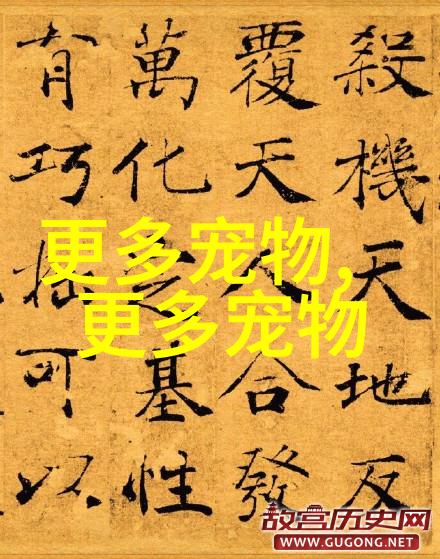 殺機天地反
覆天人合發
萬化基性
有巧拙可以
更多宠物,
更多宠物
故宫历史网
WWW.GUGONG.NET